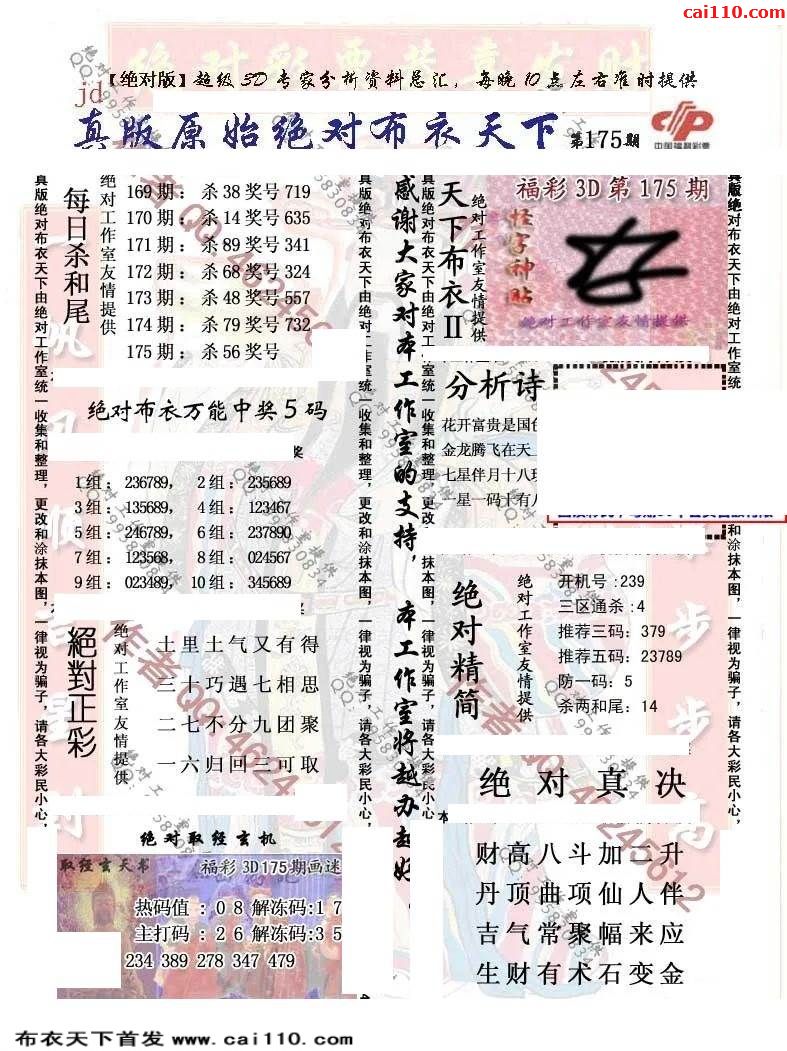 cai110.com
【绝对版】超级3D专家分析资料总汇，每晚10点左右准时提供
jd
真版原始绝对布衣天下 第175期
中国福利彩票
每日杀和尾
绝对工作室友情提供
169期：杀38奖号719
170期：杀14奖号635
171期：杀89奖号341
172期：杀68奖号324
173期：杀48奖号557
174期：杀79奖号732
175期：杀56奖号
绝对布衣万能中奖5码
1组：236789， 2组：235689
3组：135689， 4组：123467
5组：246789， 6组：237890
7组：123568， 8组：024567
9组：023489， 10组：345689
絕對正彩
绝对工作室友情提供
土里土气又有得
三十巧遇七相思
二七不分九团聚
一六归回三可取
绝对取经玄机
取经玄天书
福彩3D175期画迷
热码值：08解冻码:17
主打码：26解冻码:35
234 389 278 347 479
真版绝对布衣天下由绝对工作室统一收集和整理，更改和涂抹本图，一律视为骗子，请各大彩民小心，
感谢大家对本工作室的支持，本工作室将越办越好。
天下布衣II
绝对工作室友情提供
福彩3D第175期
怪字神贴
绝对工作室友情提供
分析诗
花开富贵是国
金龙腾飞在天
七星伴月十八
一星一码十有
绝对精简
绝对工作室友情提供
开机号:239
三区通杀:4
推荐三码:379
推荐五码:23789
防一码：5
杀两和尾：14
绝对真决
财高八斗加二升
丹顶曲项仙人伴
吉气常聚幅来应
生财有术石变金
布衣天下首发 www.cai110.com